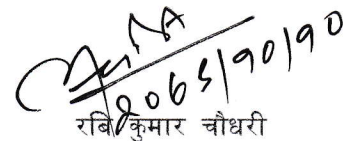 २०६५/१०/१०
रबि कुमार चौधरी